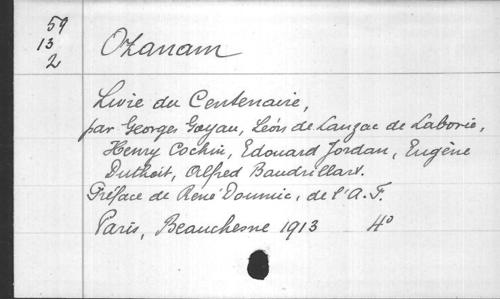 59
13
2
Ozanam
Livre du Centenaire,
par Georges Goyau, Léon de Lanzac de Laborie,
Henry Cochin, Edouard Jordan, Eugène
Duthoit, Alfred Baudrillart.
Préface de René Doumic, de l'A. F.
Paris, Beauchesne 1913 4°